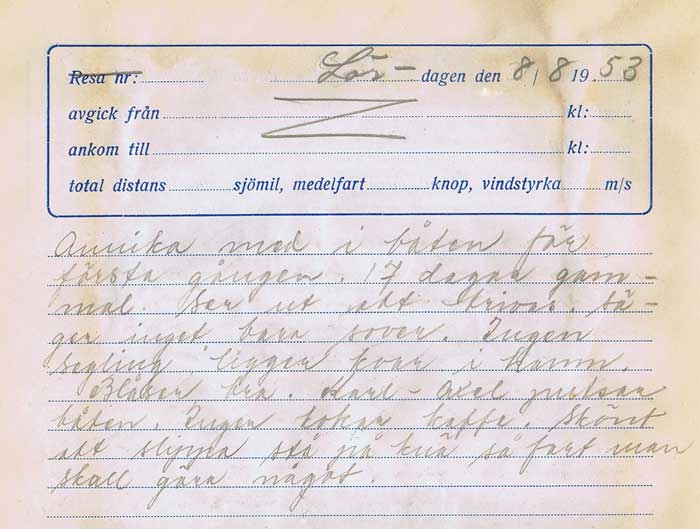 Resa nr: Lör- dagen den 8/8 1953
avgick från kl:
ankom till kl:
total distans sjömil, medelfart knop, vindstyrka m/s
Annika med i båten för
första gången. 17 dagar gam-
mal. Ser ut att trivas. Sä-
ger inget bara sover. Ingen
segling, ligger kvar i hamn.
Blåser bra. Karl-Axel putsar
båten. Inger kokar kaffe. Skönt
att slippa stå på knä så fort man
skall göra något.